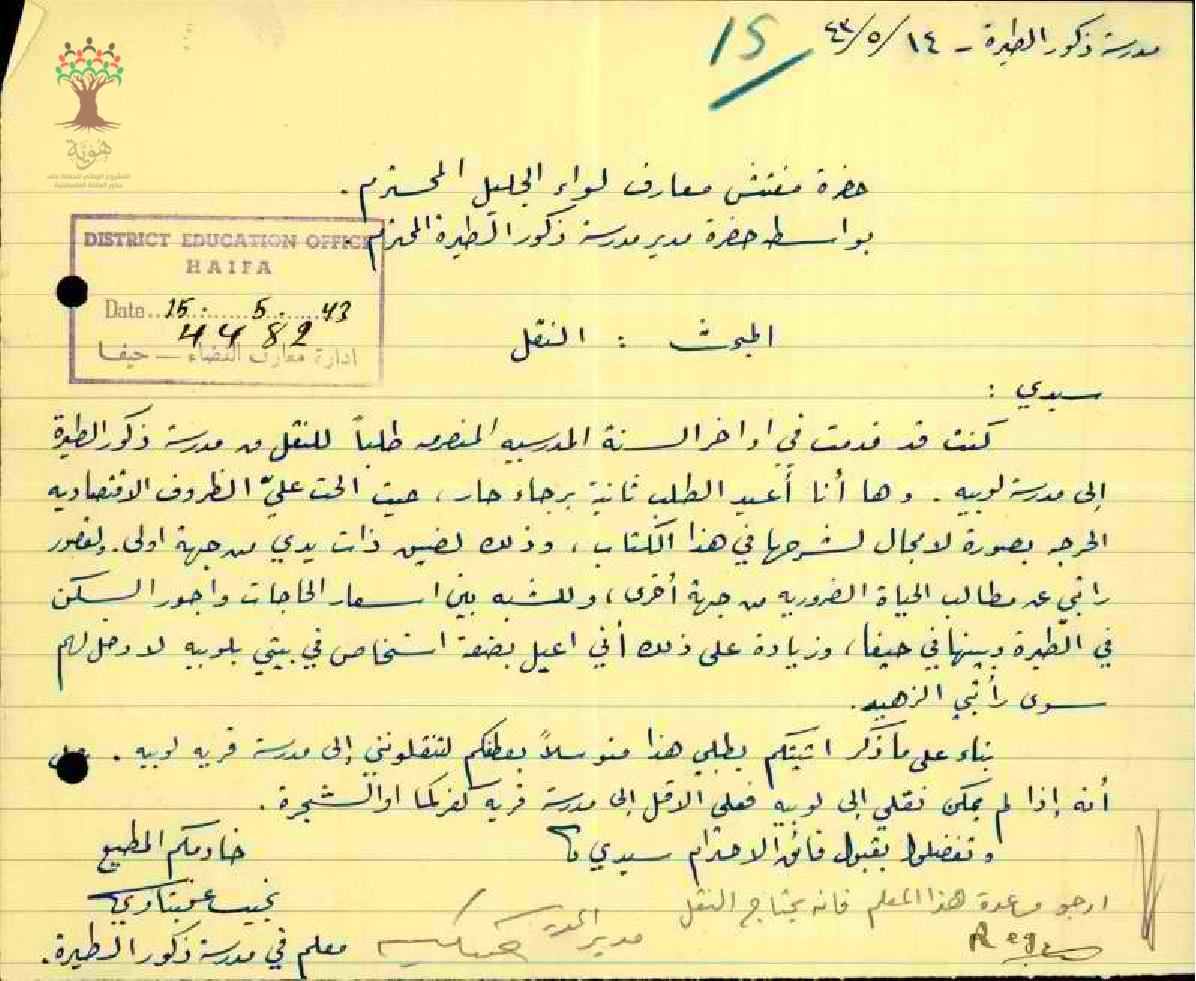 مدرسة ذكور الطيرة - ١٤/٥/٤٣
15
هوية
المشروع الوطني للحفاظ على
جذور العائلة الفلسطينية
حضرة مفتش معارف لواء الجليل المحترم.
بواسطة حضرة مدير مدرسة ذكور الطيرة المحترم.
DISTRICT EDUCATION OFFICE
HAIFA
Date..15.......5.......43
4482
ادارة معارف القضاء — حيفا
المبحث : النقل
سيدي :
كنت قد قدمت في اواخر السنة المدرسيه المنصرمه طلباً للنقل من مدرسة ذكور الطيرة
إلى مدرسة لوبيه. وها أنا أعيد الطلب ثانية برجاء حار، حيث الحت عليّ الظروف الاقتصاديه
الحرجه بصورة لا مجال لشرحها في هذا الكتاب، وذلك لضيق ذات يدي من جهة اولى. ولقصور
راتبي عن مطالب الحياة الضروريه من جهة أخرى، وللشبه بين اسعار الحاجات واجور السكن
في الطيرة وبينها في حيفا، وزيادة على ذلك أني اعيل بضعة اشخاص في بيتي بلوبيه لا دخل لهم
سوى راتبي الزهيد.
بناء على ما ذكر اتيتكم بطلبي هذا متوسلاً بعطفكم لتنقلونني إلى مدرسة قرية لوبيه. على
أنه إذا لم يمكن نقلي إلى لوبيه فعلى الاقل إلى مدرسة قرية كفركما او الشجرة.
وتفضلوا بقبول فائق الاحترام سيدي
خادمكم المطيع
نجيب
معلم في مدرسة ذكور الطيرة.
ارجو مساعدة هذا المعلم فانه يحتاج النقل
مدير المدرسة